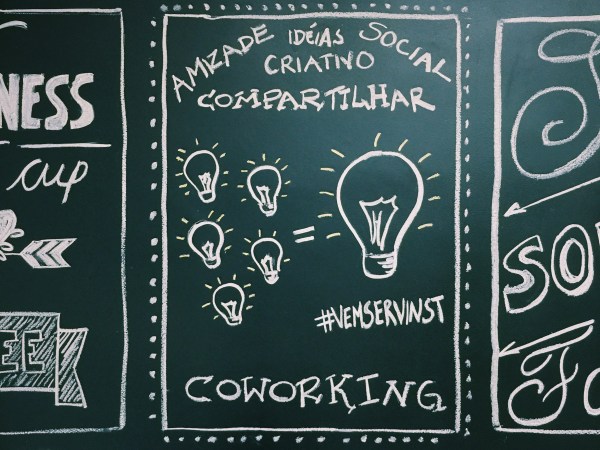 NESS
cup
EE
AMIZADE IDÉIAS SOCIAL
CRIATIVO
COMPARTILHAR
=
#VEMSERVINST
COWORKING
SO